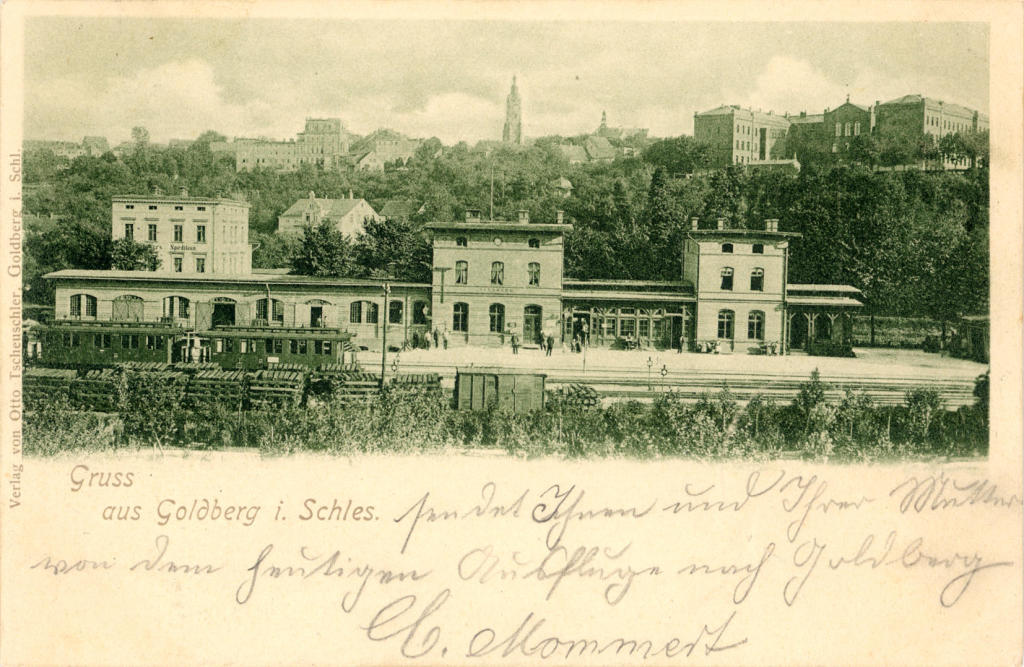 Spedition
GOLDBERG
Gruss
aus Goldberg i. Schles. sendet Ihnen und Ihrer Mutter
von dem heutigen Ausfluge nach Goldberg
C. Mommert
Verlag von Otto Tscheuschler, Goldberg i. Schl.